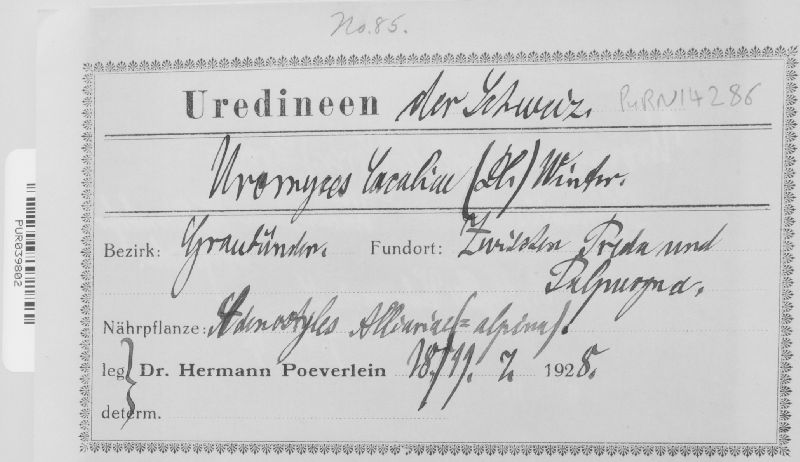 No. 85.
Uredineen der Schweiz. PURN14286
Uromyces Cacaliae (DC.) Winter.
Bezirk: Graubünden. Fundort: Zwischen Preda und
Palpuogna.
Nährpflanze: Adenostyles Alliariae (= alpina).
leg. Dr. Hermann Poeverlein 18./19. 7. 1928.
determ.
PUR039802